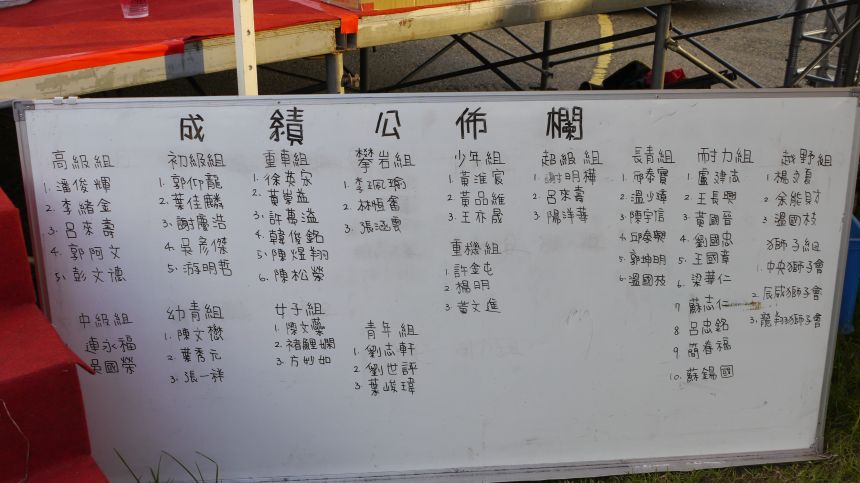 成績公佈欄
高級組
1. 潘俊輝
2. 李緒金
3. 呂來壽
4. 郭阿文
5. 彭文德
中級組
連永福
吳國榮
初級組
1. 郭仰龍
2. 葉佳麟
3. 謝慶浩
4. 吳彥傑
5. 游明哲
幼青組
1. 陳文懋
2. 葉秀元
3. 張一祥
重車組
1. 徐英家
2. 黃崇益
3. 許萬溢
4. 韓俊銘
5. 陳煜翔
6. 陳松榮
女子組
1. 陳文蘂
2. 褚鯉嫻
3. 方妙如
攀岩組
1. 李珮瑜
2. 林恆奮
3. 張涵雲
青年組
1. 劉志軒
2. 劉世評
3. 葉嵘瑋
少年組
1. 黃淮宸
2. 黃品維
3. 王亦晟
重機組
1. 許金屯
2. 楊明
3. 黃文進
超級組
1. 謝明樺
2. 呂來壽
3. 陽洋華
長青組
1. 邱泰寶
2. 溫少瑋
3. 陳宇信
4. 邱泰興
5. 郭坤明
6. 溫國枝
耐力組
1. 盧建志
2. 王長興
3. 黃國晉
4. 劉國忠
5. 王國章
6. 梁華仁
7 蘇志仁
8 呂忠銘
9 簡春福
10. 蘇錫國
越野組
1. 楊立夏
2. 余能財
3 溫國枝
獅子組
1. 中央獅子會
2. 辰威獅子會
3. 龍翔獅子會